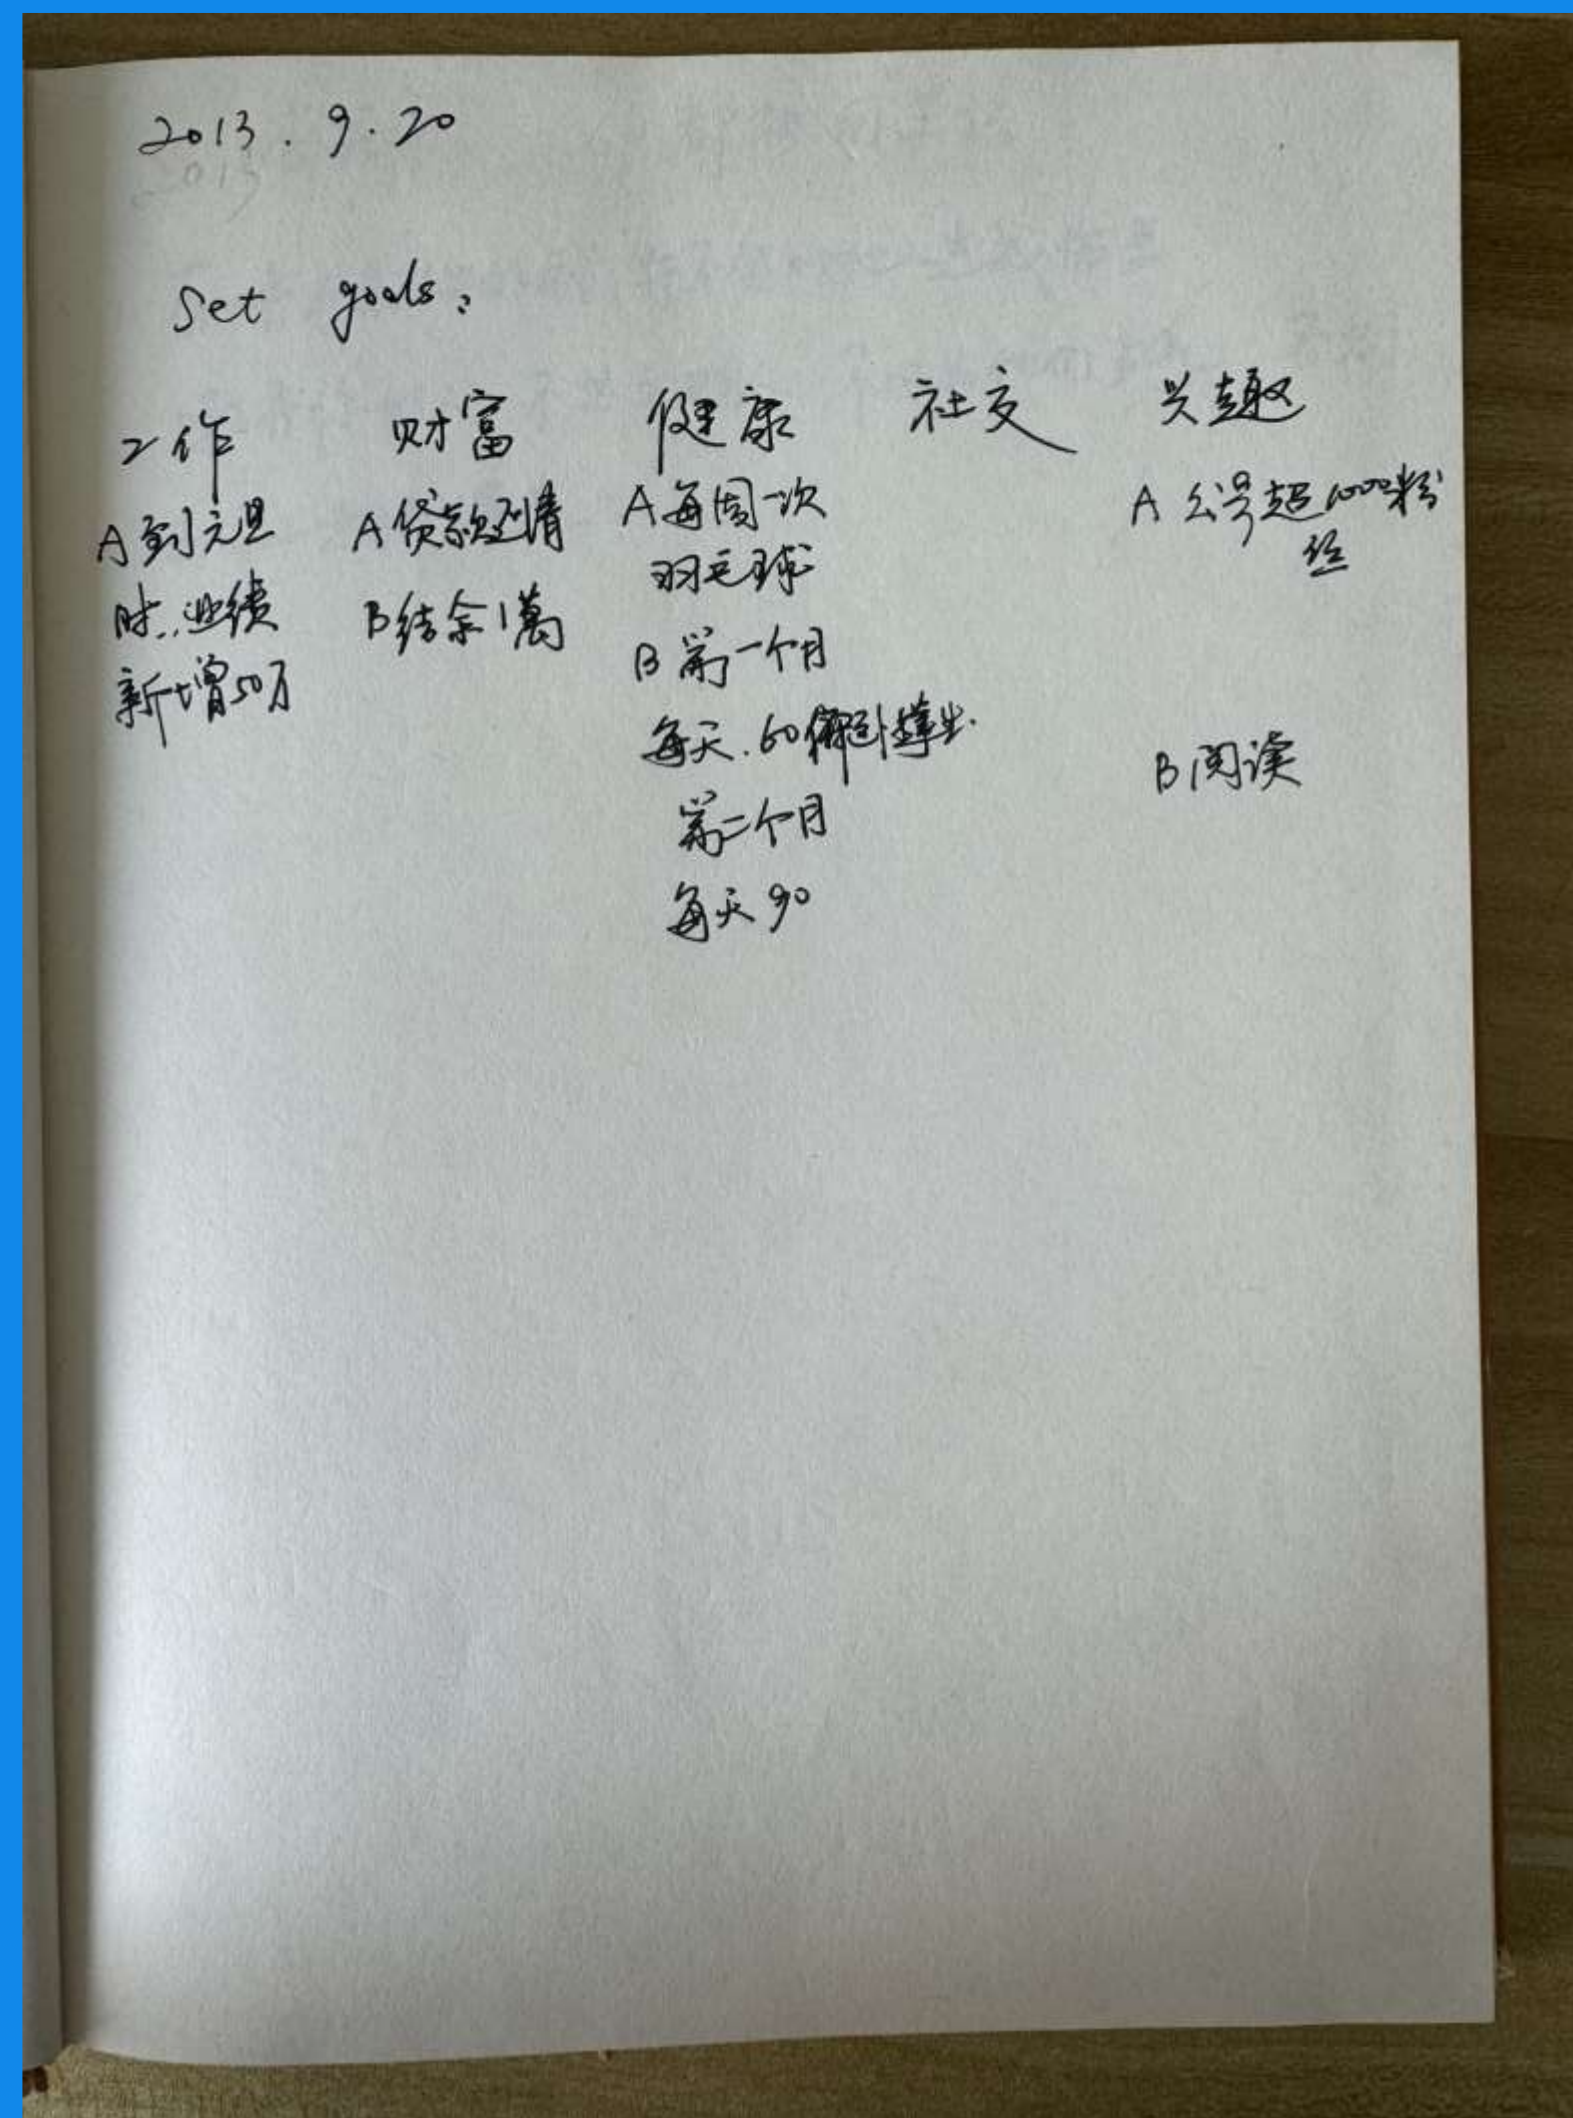 2013.9.20
Set goals:
工作
A 到元旦
时..业绩
新增50万
财富
A 贷款还清
B 结余1萬
健康
A 每周一次
羽毛球
B 第一个月
每天.60俯卧撑
第二个月
每天90
社交
兴趣
A 公号超1000粉
丝
B 阅读